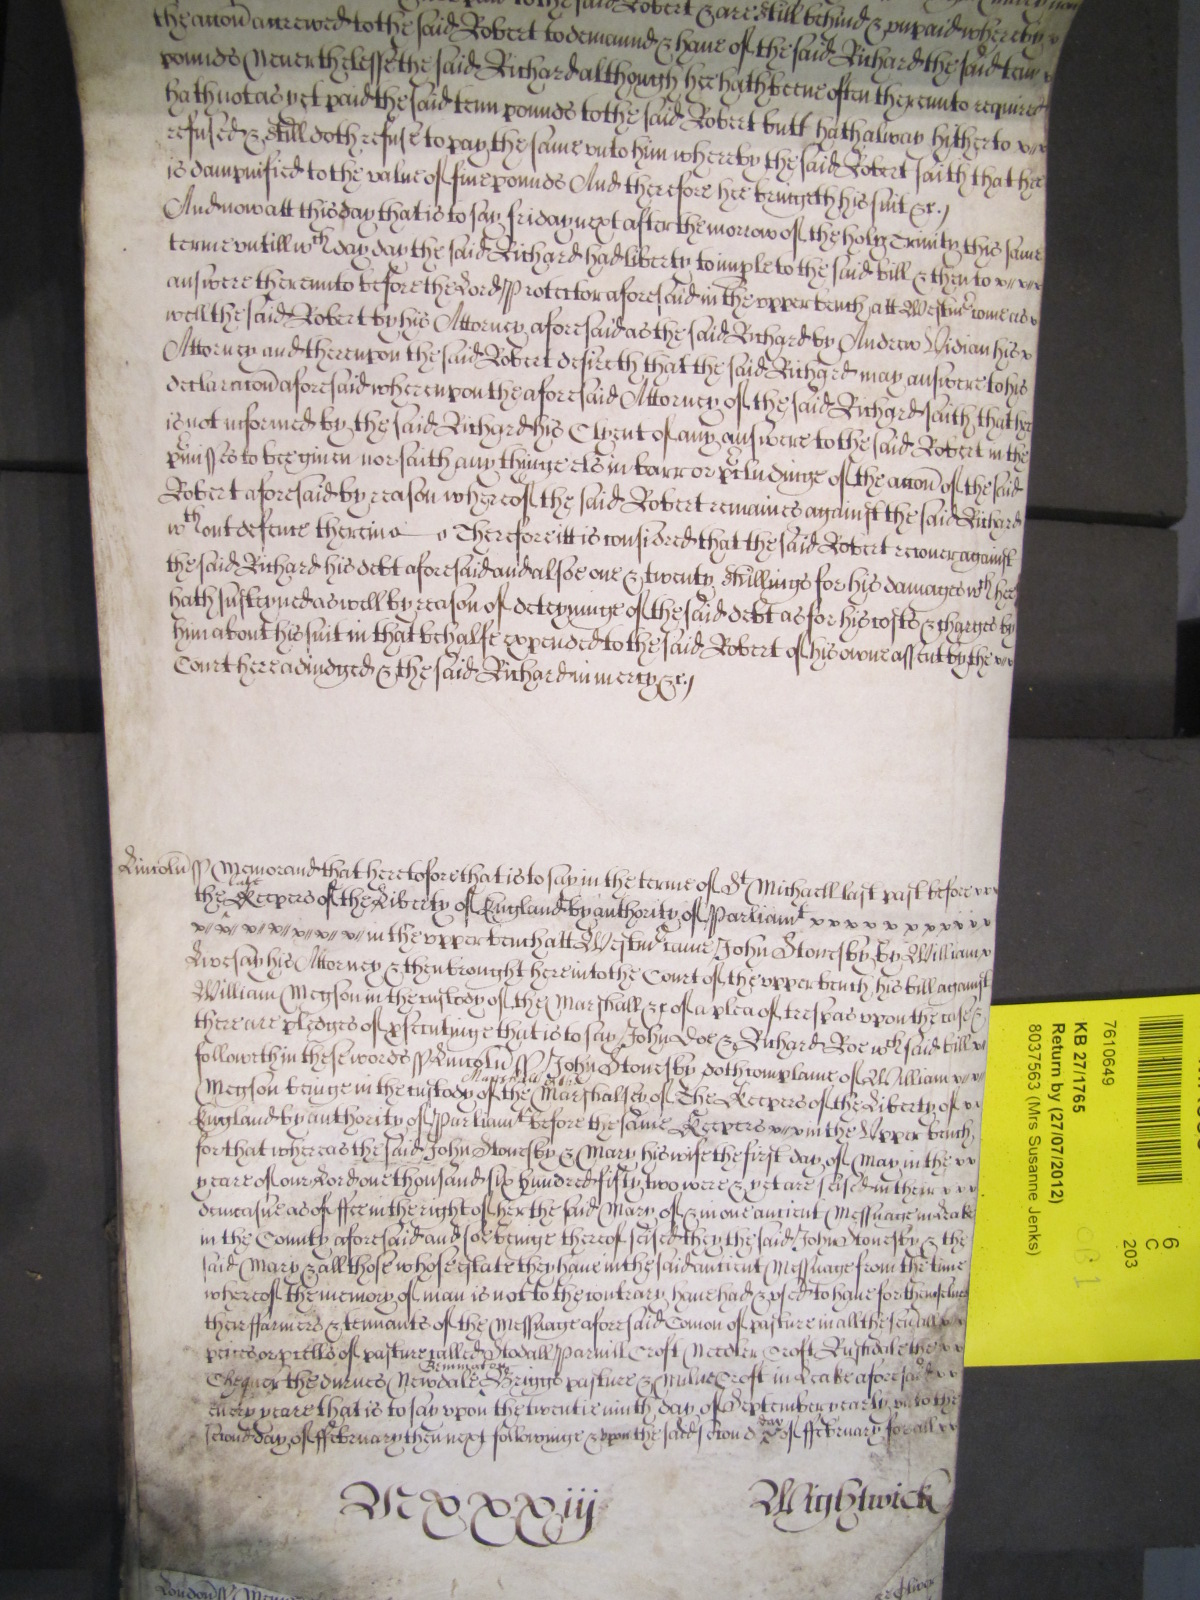 to the said Robert & are still behind & unpaid whereby
the accon accrewed to the said Robert to demaund & have of the said Richard the said tenn
pounds Neverthelesse the said Richard although hee hath beene often thereunto required
hath not as yet paid the said tenn pounds to the said Robert butt hath alway hitherto
refused & still doth refuse to pay the same unto him whereby the said Robert saith that hee
is dampnified to the value of five pounds And therefore hee bringeth his suit &c.
And now att this day that is to say friday next after the morrow of the holy Trinity this same
terme untill wch day day the said Richard had liberty to imple to the said bill & then to
answere thereunto before the Lord Protector aforesaid in the upper bench att Westmr come as
well the said Robert by his Attorney aforesaid as the said Richard by Andrew Vidian his
Attorney and thereupon the said Robert desireth that the said Richard may answere to his
declaracon aforesaid whereupon the aforesaid Attorney of the said Richard saith that hee
is not informed by the said Richard his Clyent of any answere to the said Robert in the
prmisses to bee given nor saith any thinge els in barr or prcludinge of the accon of the said
Robert aforesaid by reason whereof the said Robert remaines against the said Richard
wthout defence therein Therefore itt is considred that the said Robert recover against
the said Richard his debt aforesaid and alsoe one & twenty shillings for his damages wch hee
hath susteyned aswell by reason of deteyninge of the said debt as for his costs & charges by
him about his suit in that behalfe expended to the said Robert of his owne assent by the
Court here adiudged & the said Richard in mercy &c.
Lincoln ss Memorand that heretofore that is to say in the terme of St Michaell last past before
the late Keepers of the Liberty of England by authority of Parliamt
in the upper bench att Westmr came John Stonesby by William
Livesay his Attorney & then brought here into the Court of the upper bench his bill against
William Megson in the custody of the Marshall &c of a plea of trespas upon the case &
there are pledges of psecutinge that is to say John Doe & Richard Roe wch said bill
followeth in these words ss Lincoln ss John Stonesby complaine of William
Megson beinge in the custody of the Marshall of the Marshalsey of The Keepers of the Liberty of
England by authority of Parliamt before the same Keepers in the Upper bench
for that whereas the said John Stonesby & Mary his wife the first day of May in the
yeare of our Lord one thousand six hundred fifty two were & yet are seised in their
demeasne as of ffee in the right of her the said Mary of & in one antient Messuage in Leake
in the County aforesaid and soe beinge thereof seised they the said John Stonesby & the
said Mary & all those whose estate they have in the said antient Messuage from the time
whereof the memory of man is not to the contrary have had & used to have for themselves
their ffarmers & tennants of the Messuage aforesaid Comon of pasture in all the sevall
peices or pcells of pasture called Stodall Parmill Croft Neteler Croft Rusdale the
Chequer the durnes Newdale Bemmaton Briggs pasture & Milne Croft in Leake aforesaid
every yeare that is to say upon the twentie ninth day of September yearly unto the
second day of ffebruary then next followinge & upon the said second day of ffebruary for all
M xxxiij Wightwick
London ss Memor
7610649
KB 27/1765
Return by (27/07/2012)
8037563 (Mrs Susanne Jenks)
6
C
203